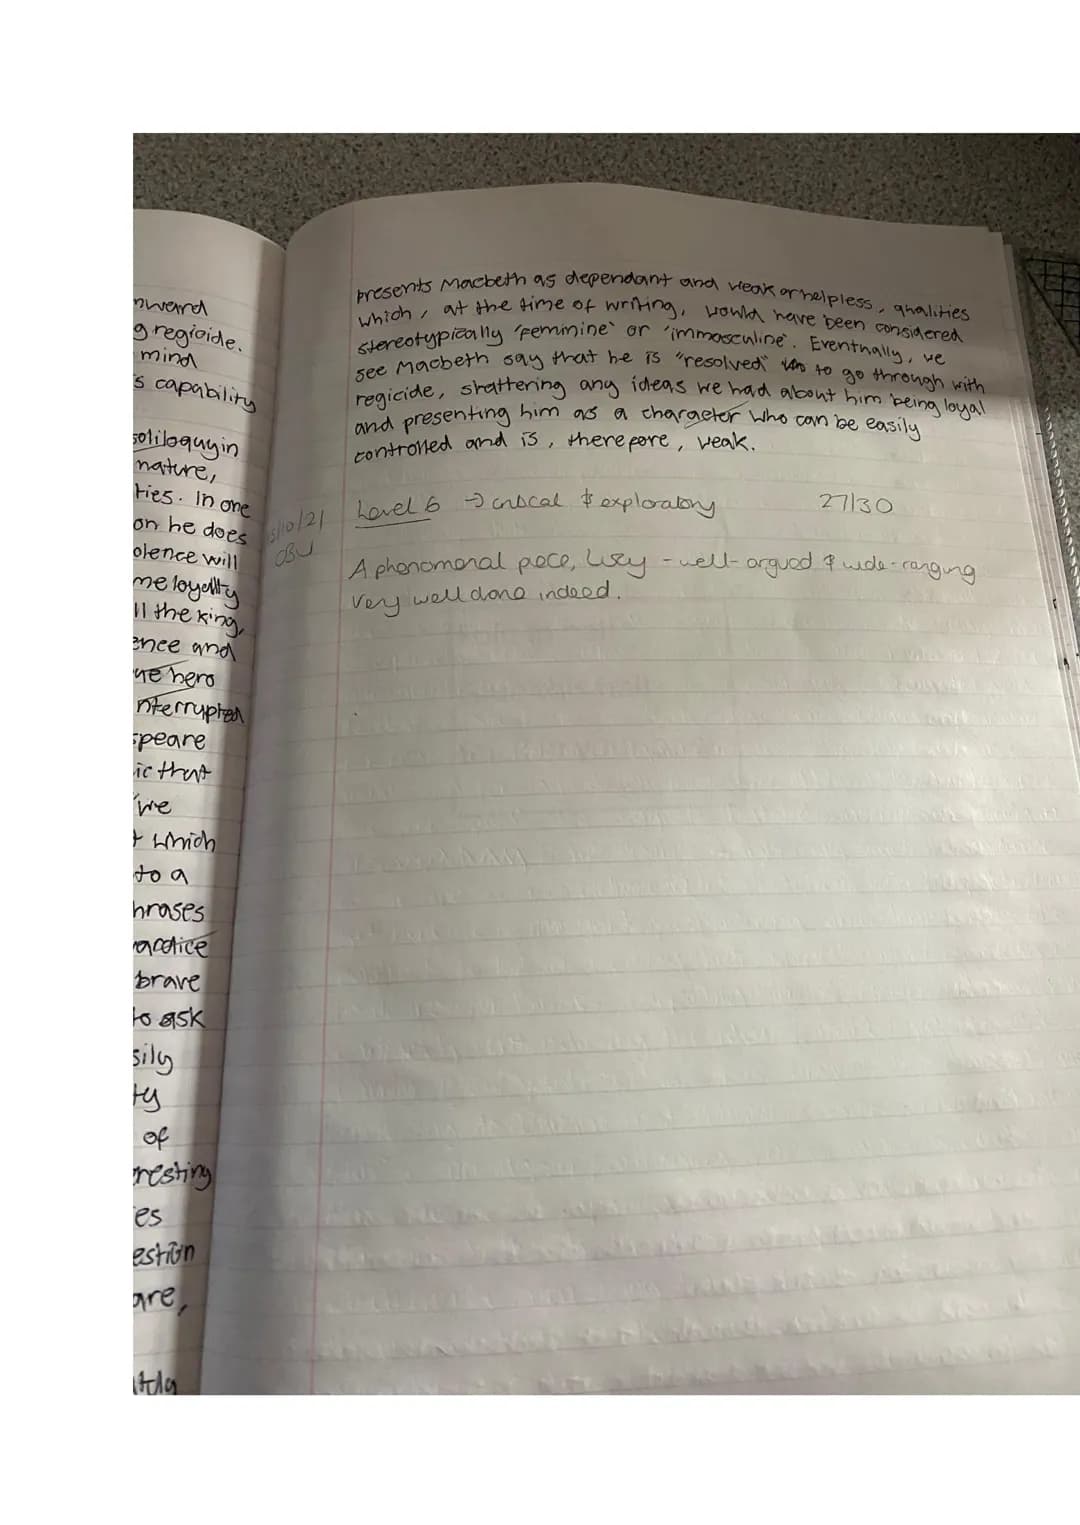 nward
g regicide.
mind
s capability
soliloquy in
nature,
ties. In one
on he does
olence will
me loyallty
ll the king,
ence and
ue hero
nterrupted
speare
ic that
've
t which
to a
hrases
wardice
brave
to ask
sily
ty
of
resting
es
estion
are,
tely
presents Macbeth as dependant and weak or helpless, qualities
which, at the time of writing, would have been considered
stereotypically 'feminine' or 'immasculine'. Eventually, we
see Macbeth say that he is "resolved" to go through with
regicide, shattering any ideas we had about him being loyal
and presenting him as a character who can be easily
controlled and is, therefore, weak.
Level 6 → critical & exploratory 27/30
/10/21
A phenomenal piece, - well-argued & wide-ranging
Very well done indeed.